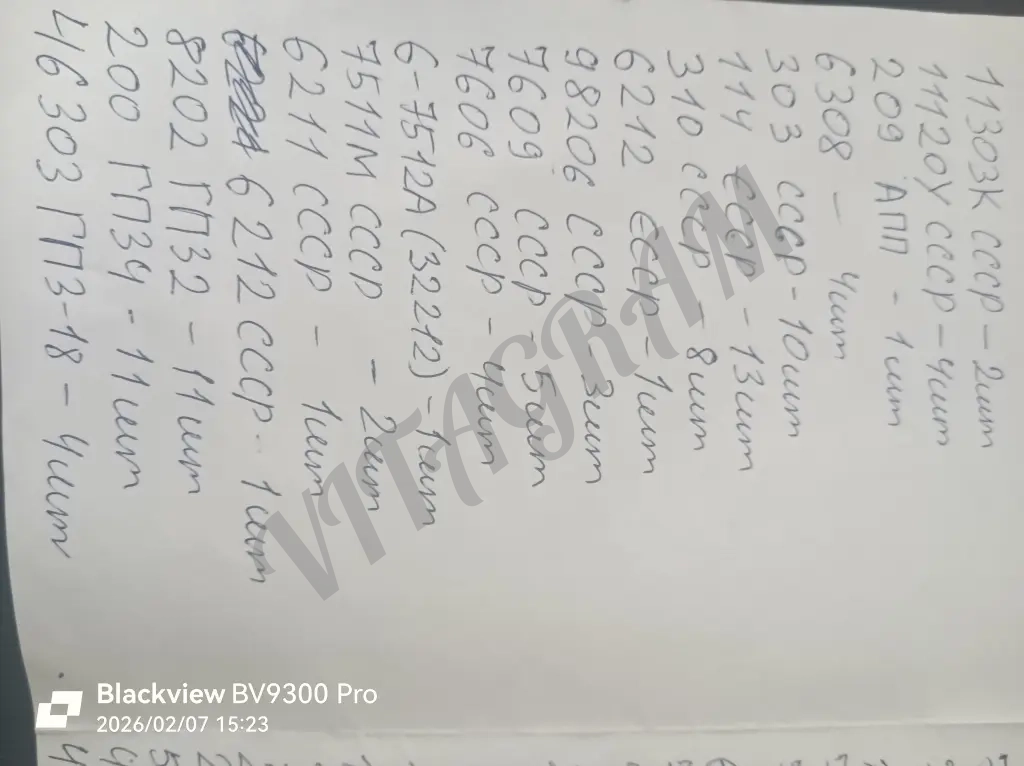 11303К СССР - 2шт
11120У СССР - 4шт
209 АПП - 1шт
6308 - 4шт
303 СССР - 10шт
114 СССР - 13шт
310 СССР - 8шт
6212 СССР - 1шт
98206 СССР - 3шт
7609 СССР - 5шт
7606 СССР - 4шт
6-7512А (32212) - 1шт
7511М СССР - 2шт
6211 СССР - 1шт
6212 СССР - 1шт
8202 ГПЗ2 - 11шт
200 ГПЗ4 - 11шт
46303 ГПЗ-18 - 4шт
VITAGRAM
Blackview BV9300 Pro
2026/02/07 15:23